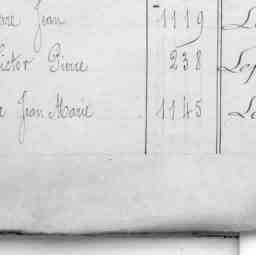 Jean 1119
Victor Pierre 238
Jean Marie 1145